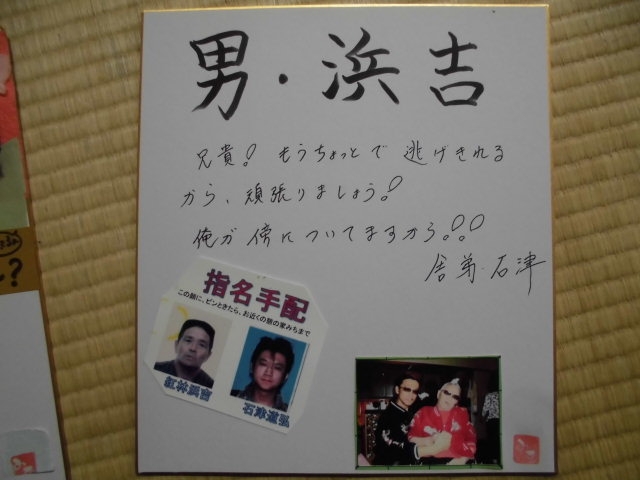 男・浜吉
兄貴! もうちょっとで 逃げきれる
から、頑張りましょう!
俺が傍についてますから!!!
舎弟・石津
指名手配
この顔に、ピンときたら、お近くの顔の家みちまで
紅林浜吉
石津道弘
?